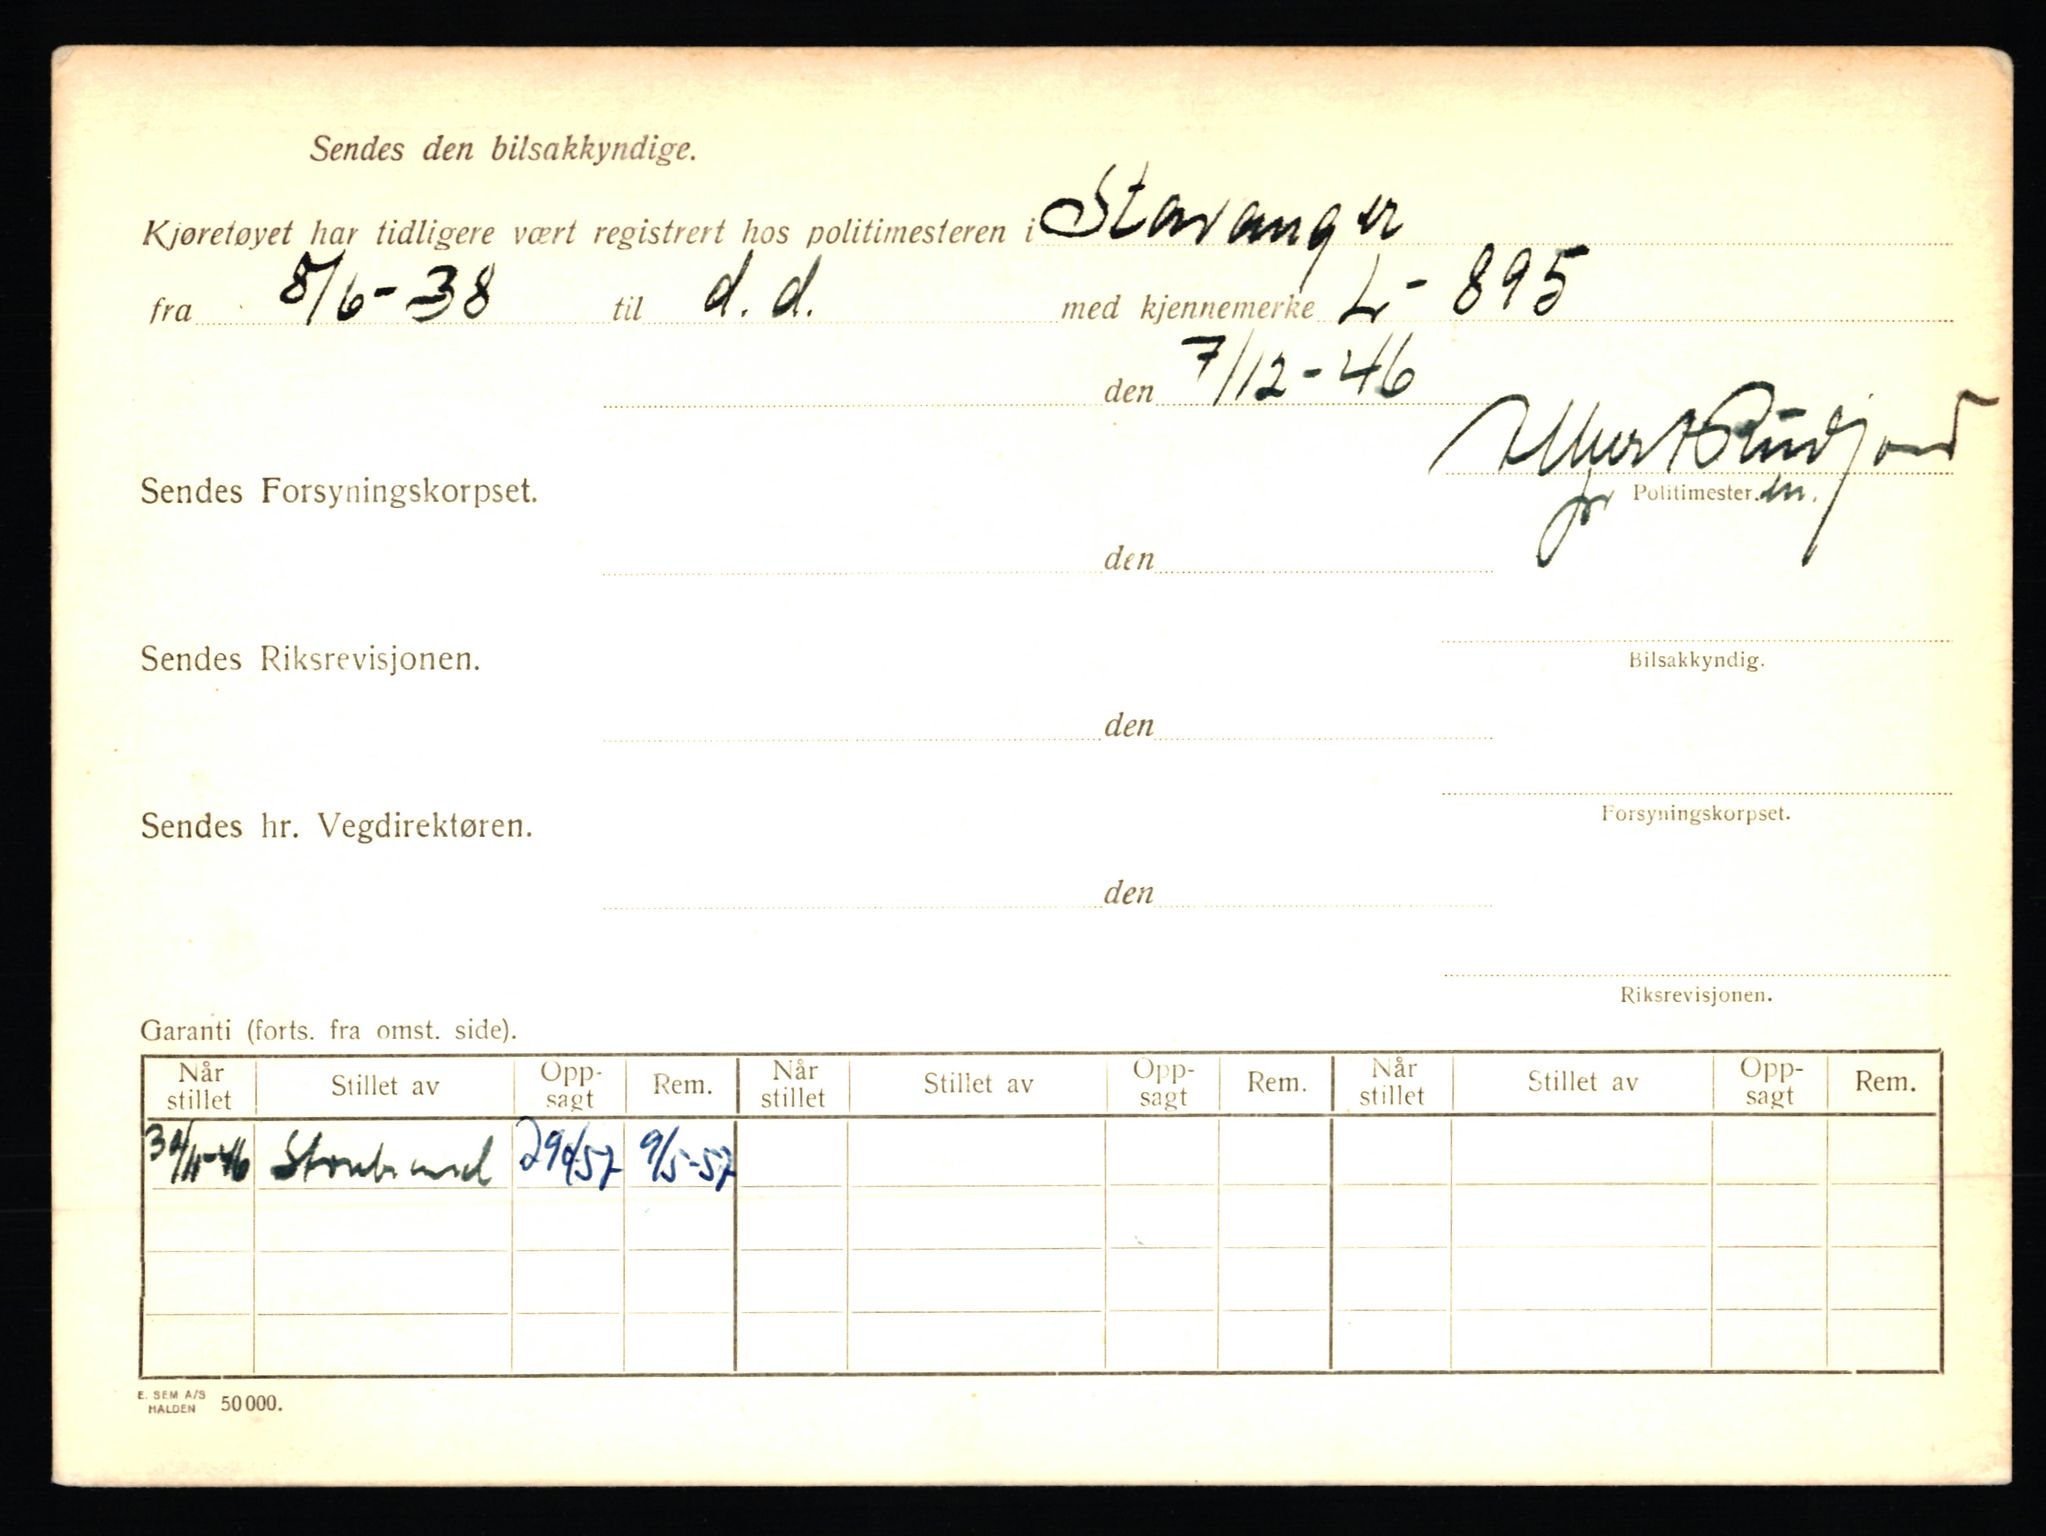 Sendes den bilsakkyndige.
Kjøretøyet har tidligere vært registrert hos politimesteren i Stavanger
fra 8/6-38 til d. d. med kjennemerke L-895
den 7/12-46
Sendes Forsyningskorpset.
fr Politimester.en.
den
Sendes Riksrevisjonen.
Bilsakkyndig.
den
Forsyningskorpset.
Sendes hr. Vegdirektøren.
den
Riksrevisjonen.
Garanti (forts. fra omst. side).
Når stillet Stillet av Opp-sagt Rem. Når stillet Stillet av Opp-sagt Rem. Når stillet Stillet av Opp-sagt Rem.
9/5-57
E. SEM A/S
HALDEN 50000.